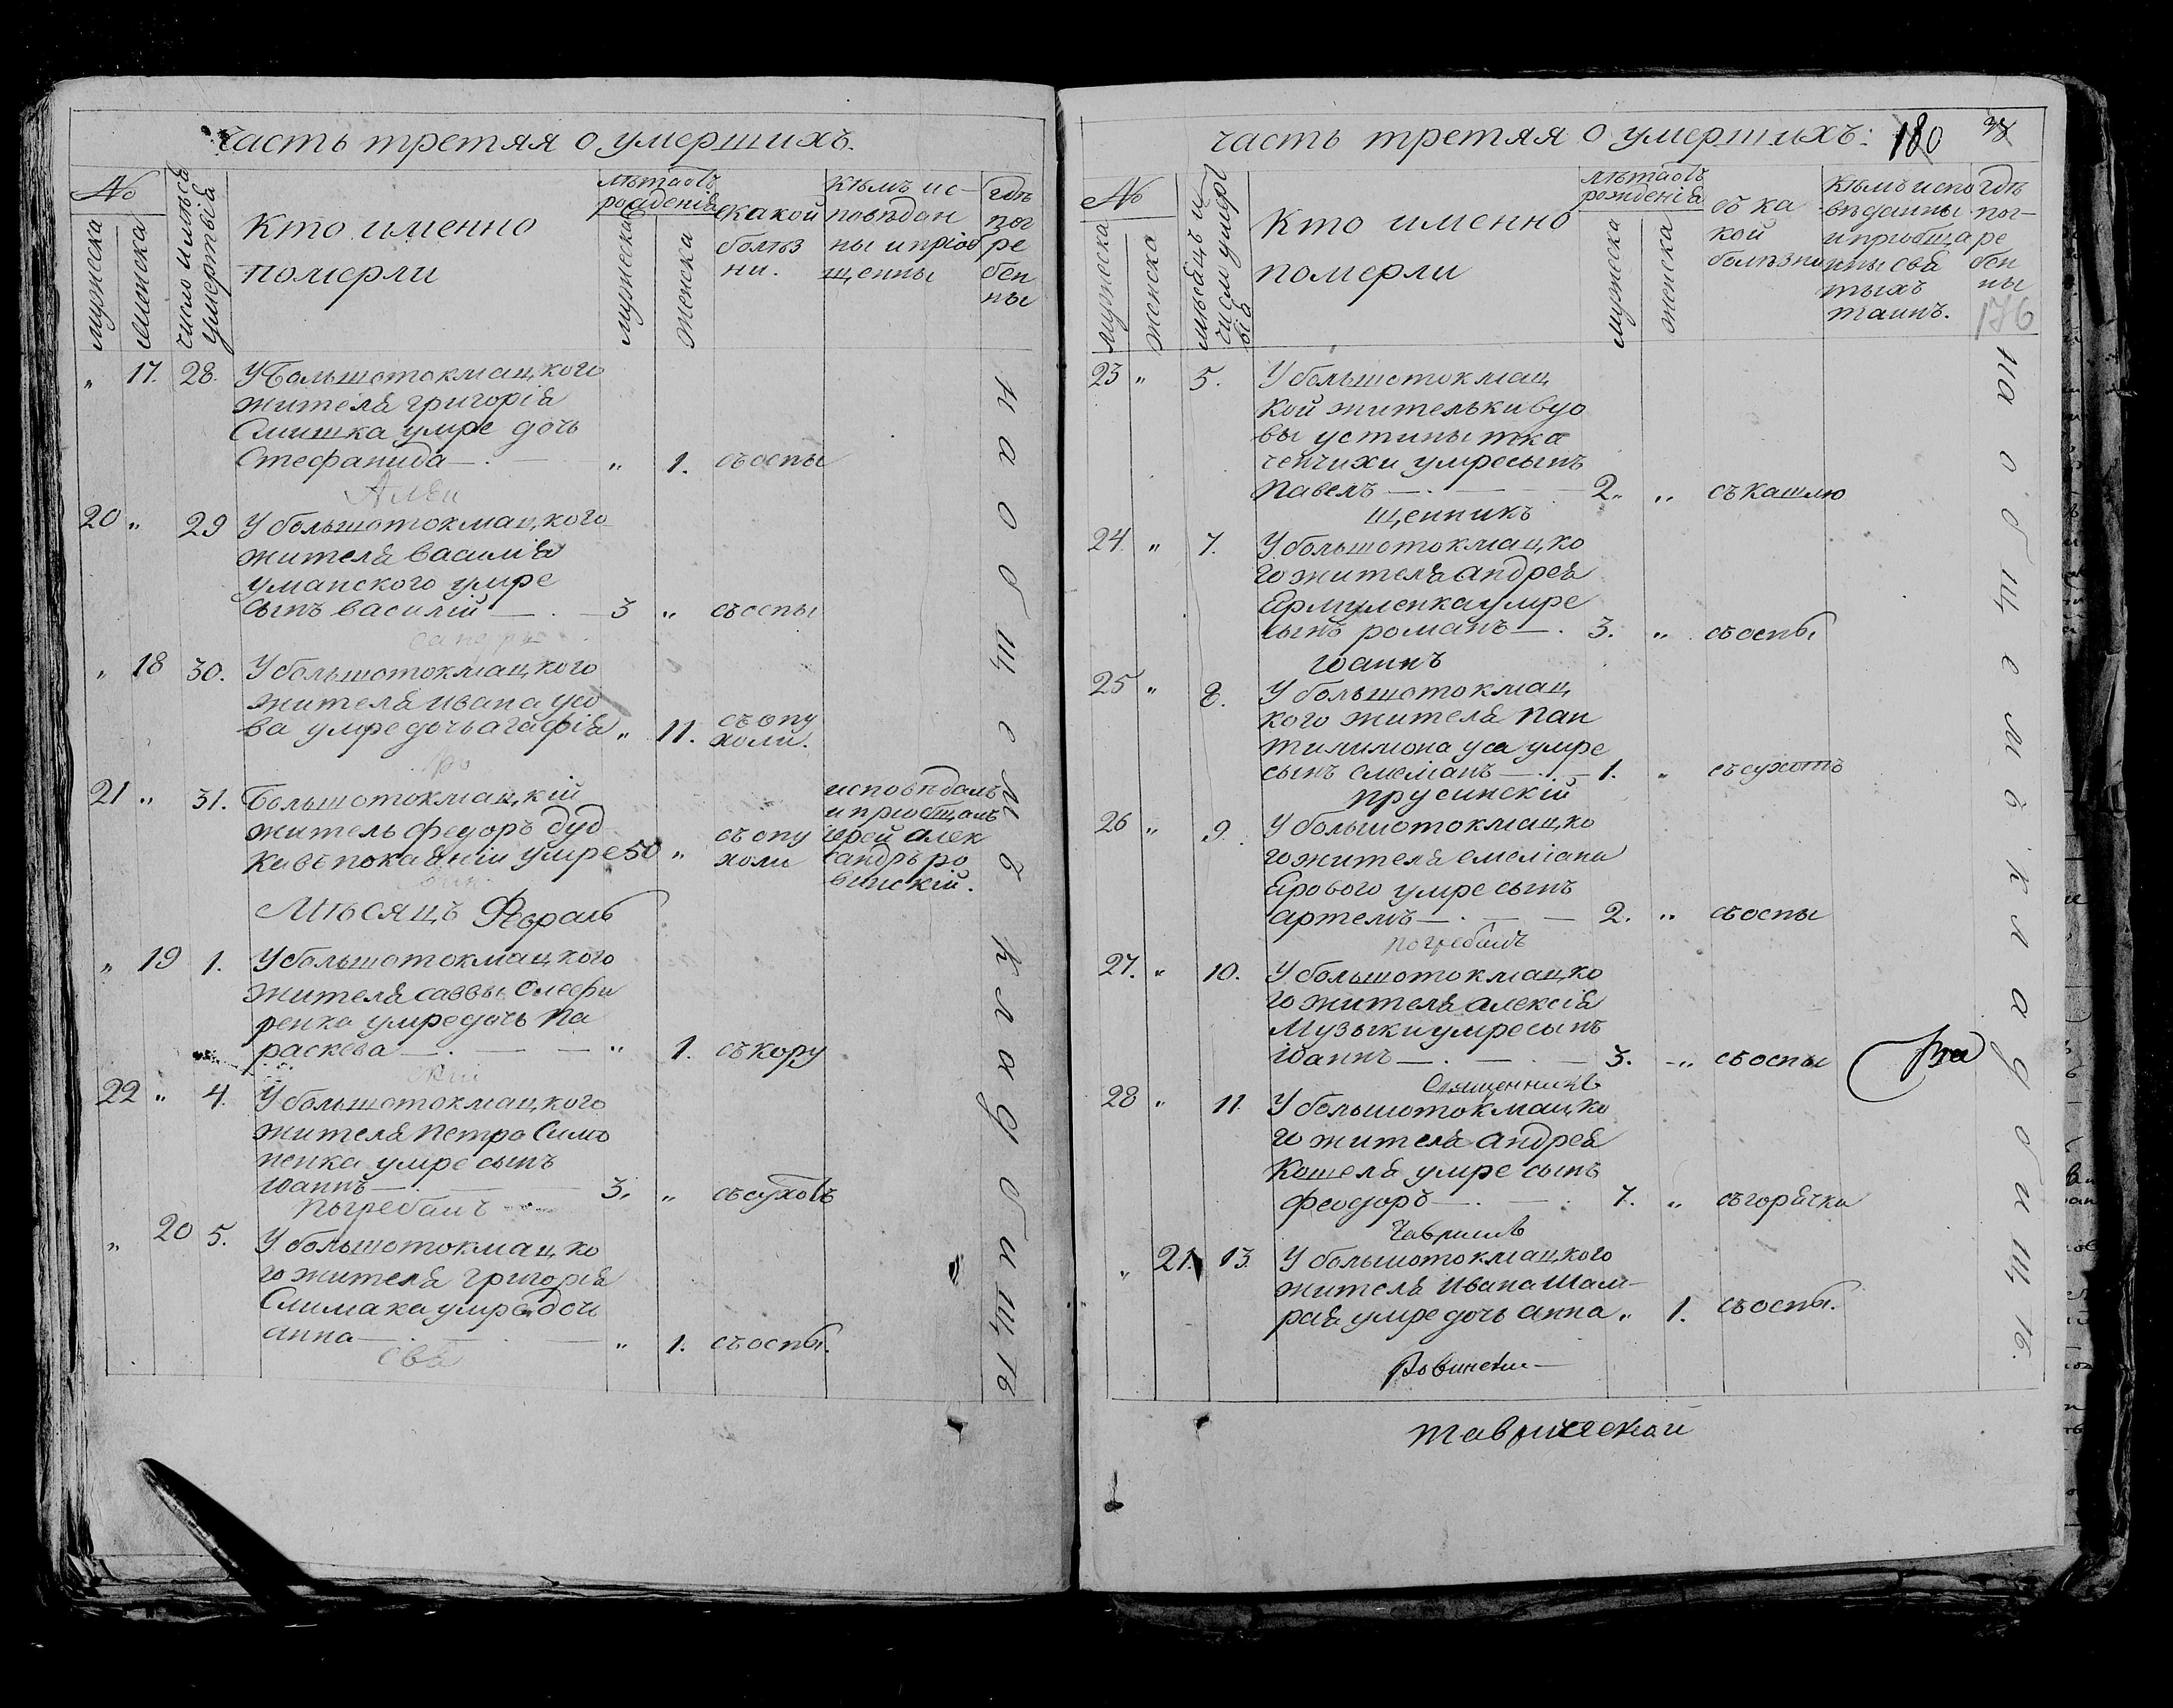 часть третяя о умершихъ.
№
мужеска
женска
число и мѣсяцъ
умертвія
Кто именно
померли
лѣта отъ
рожденія
мужеска
женска
какой
болѣз
ни.
кѣмъ ис-
повѣдан
ны и пріоб
щенны
гдѣ
пог
ре
бен
ны
" 17. 28. У большотокмацкого
жителя григорія
Слишка умре дочь
Стефанида — " 1. съ оспы
20 " 29 У большотокмацкого
жителя василія
уманского умре
сынъ василій — 3 " съ оспы
" 18 30. У большотокмацкого
жителя ивана усо
ва умре дочь агафія " 11. съ опу
холи.
21 " 31. Большотокмацкій
житель федоръ дуд
ка въ покаяніи умре 50 " съ опу
холи
исповѣдалъ
и пріобщалъ
іерей алек
сандръ ро
винскій.
Мѣсяцъ Февраль
" 19 1. У большотокмацкого
жителя саввы Олефи
ренка умре дочь Па
раскева — " 1. съ кору
22 " 4. У большотокмацкого
жителя петра Симо
ненка умре сынъ
іоаннъ — 3. " съ сухотъ
погребалъ
" 20 5. У большотокмацко
го жителя григорія
Слимака умре дочь
анна — " 1. съ оспы.
свя
на общемъ кладбищѣ
часть третяя о умершихъ:
180
176
№
мужеска
женска
мѣсяцъ и
число умерт
вія
Кто именно
померли
лѣта отъ
рожденія
мужеска
женска
отъ ка
кой
болѣзни
кѣмъ испо
вѣданны
и пріобща
нны свя
тыхъ
таинъ.
гдѣ
пог-
ре
бен
ны
23 " 5. У большотокмац
кой жительки вдо
вы устины тка
ченчихи умре сынъ
павелъ — 2. " съ кашлю
щенникъ
24. " 7. У большотокмацко
го жителя андрея
Ярмиленка умре
сынъ романъ — 3. " съ оспы
іоаннъ
25 " 8. У большотокмац
кого жителя пан
тилимона уса умре
сынъ емеліанъ — 1. " съ сухотъ
прусинскій
26 " 9. У большотокмацко
го жителя емеліана
Ярового умре сынъ
артемъ — 2. " съ оспы
погребалъ
27. " 10. У большотокмацко
го жителя алексія
Музыки умре сынъ
іоаннъ — 3. " съ оспы
Священникъ
28 " 11. У большотокмацко
го жителя андрея
Котеля умре сынъ
феодоръ — 7. " съ горячки
Гавріилъ
" 21. 13. У большотокмацкого
жителя ивана Шам-
рая умре дочь анна " 1. съ оспы.
Ровински
на общемъ кладбищѣ.
таврической